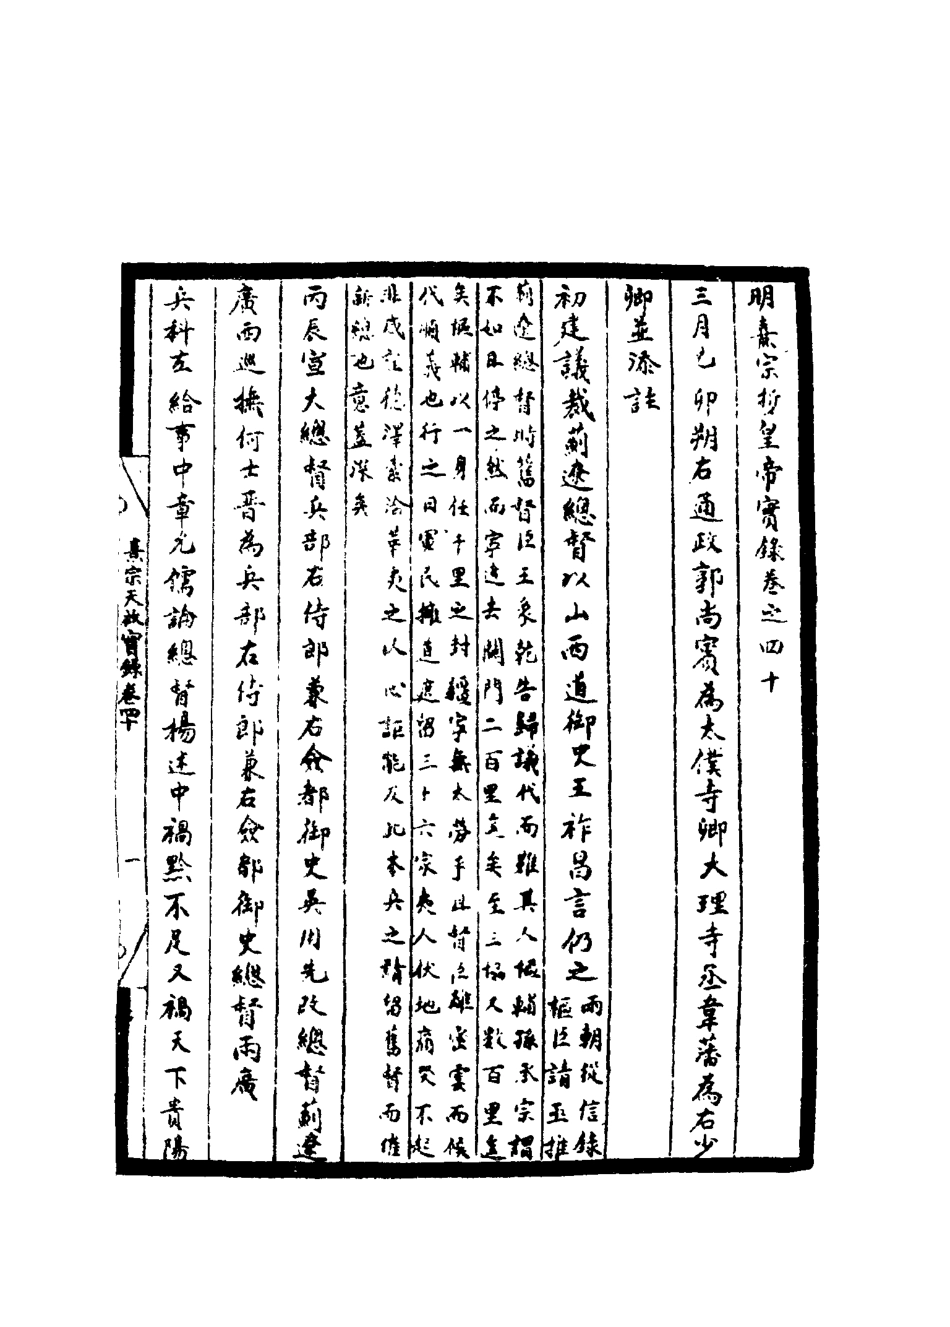 明熹宗哲皇帝實錄卷之四十
三月己卯朔右通政郭尚賓為太僕寺卿大理寺丞韋藩為右少
卿並添註
初建議裁薊遼總督以山西道御史王祚昌言仍之兩朝從信錄
樞臣請並推
薊遼總督時舊督臣王象乾告歸議代而難其人樞輔孫承宗謂
不如且停之然而寧遠去關門二百里矣至三協又數百里遠
矣樞輔以一身任千里之封疆寧無太勞乎且督臣雖密雲而候
代順義也行之日軍民擁道遮留三十六家夷人伏地痛哭不起
非威望德澤素洽華夷之以心詎能及此本兵之請留舊督而催
新總也意蓋深矣
丙辰宣大總督兵部右侍郎兼右僉都御史吳用先改總督薊遼
廣西巡撫何士晉為兵部右侍郎兼右僉都御史總督兩廣
兵科左給事中章允儒論總督楊述中禍黔不足又禍天下貴陽
熹宗天啟實錄卷四十
一